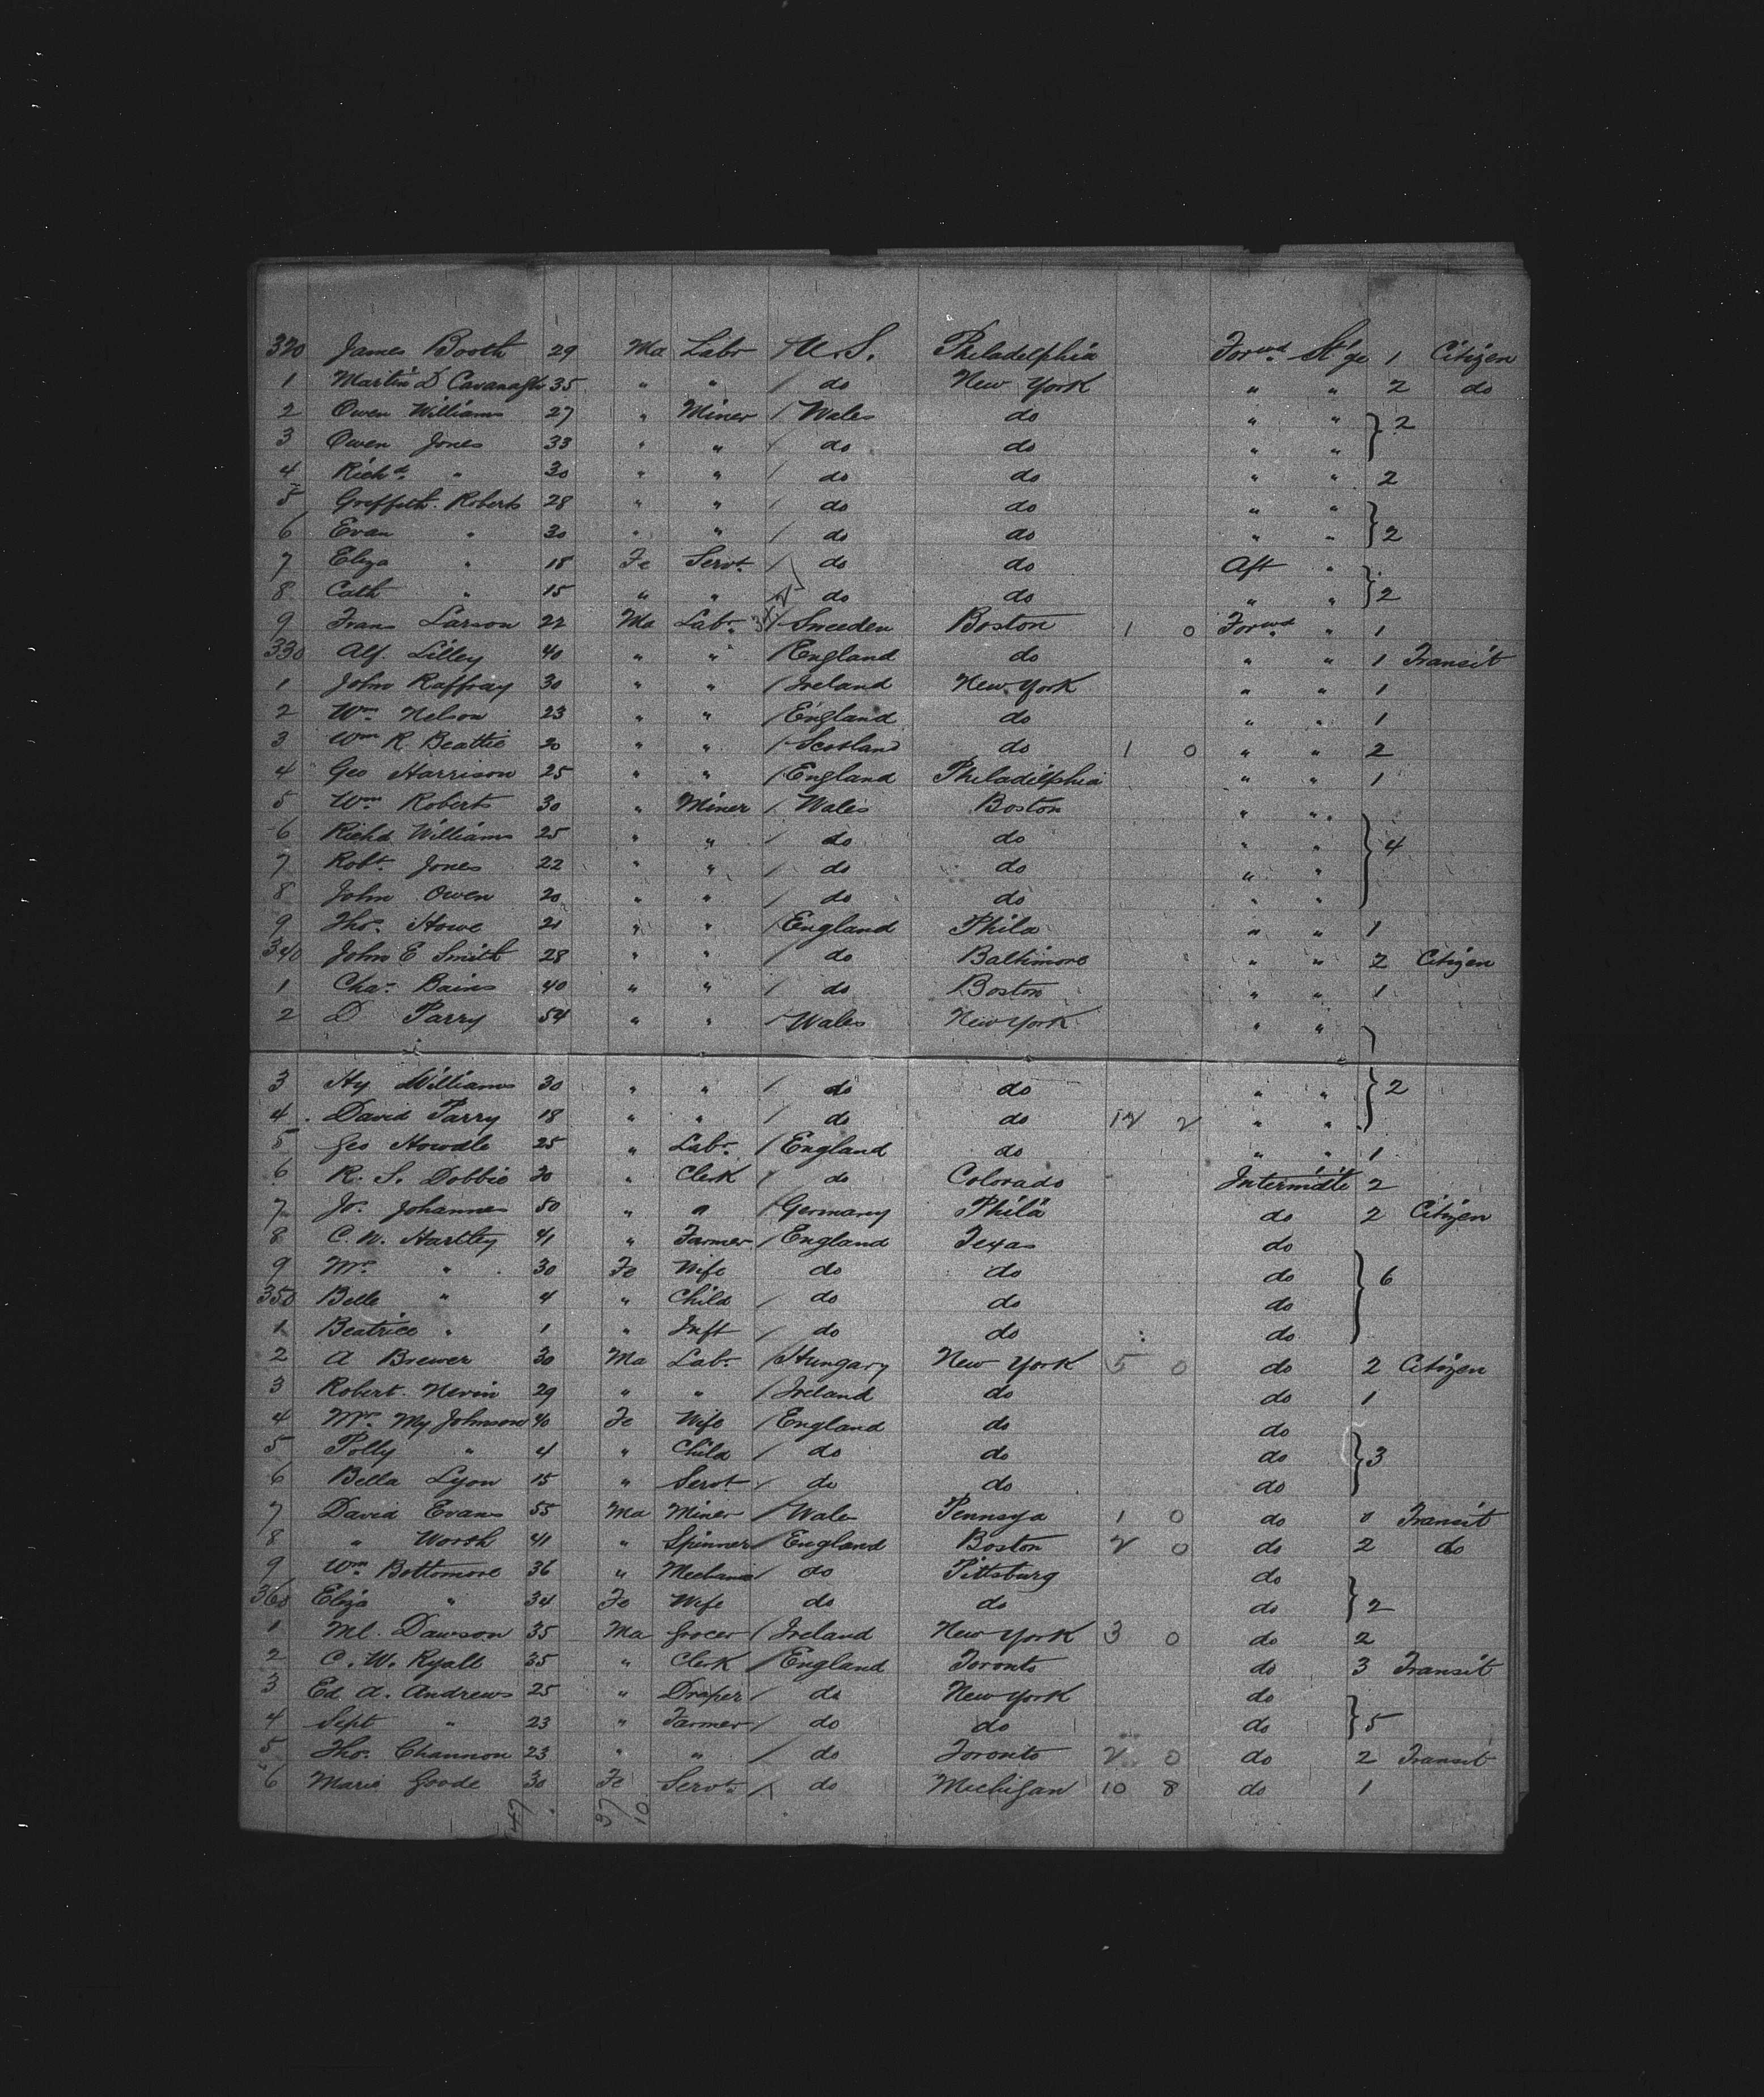 320 James Booth 29 Ma Labr / U.S. Philadelphia Forwd St'ge 1 Citizen
1 Martin D Cavanagh 35 " " / do New York " " 2 do
2 Owen Williams 27 " Miner / Wales do " " } 2
3 Owen Jones 33 " " / do do " "
4 Richd " 30 " " / do do " " 2
5 Griffith Roberts 28 " " / do do " "
6 Evan " 30 " " / do do " " } 2
7 Eliza " 18 Fe Servt / do do Aft "
8 Cath " 15 " " / do do " " } 2
9 Frans Larson 22 Ma Labr / Sweeden Boston 1 0 Forwd " 1
330 Alf. Lilley 40 " " / England do " " 1 Transit
1 John Raffray 30 " " / Ireland New York " " 1
2 Wm Nelson 23 " " / England do " " 1
3 Wm R. Beattie 20 " " / Scotland do 1 0 " " 2
4 Geo Harrison 25 " " / England Philadelphia " " 1
5 Wm Roberts 30 " Miner / Wales Boston " "
6 Richd Williams 25 " " / do do " " } 4
7 Robt Jones 22 " " / do do " "
8 John Owen 20 " " / do do " "
9 Thos Howe 21 " " / England Phila " " 1
340 John E Smith 28 " " / do Baltimore " " 2 Citizen
1 Chas Bains 40 " " / do Boston " " 1
2 D Parry 54 " " / Wales New York " "
3 Hy Williams 30 " " / do do " " } 2
4 David Parry 18 " " / do do 12 2 " "
5 Geo Howdle 25 " Labr / England do " " 1
6 R. S. Dobbie 30 " Clerk / do Colorado Intermdte 2
7 Jo. Johannes 50 " " / Germany Phila do 2 Citizen
8 C. W. Hartley 41 " Farmer / England Texas do
9 Mrs " 30 Fe Wife do do do } 6
350 Belle " 4 " Child / do do do
1 Beatrice " 1 " Inft / do do do
2 A Brewer 30 Ma Labr / Hungary New York 5 0 do 2 Citizen
3 Robert Nevin 29 " " / Ireland do do 1
4 Mrs My Johnson 40 Fe Wife / England do do
5 Polly " 4 " Child / do do do } 3
6 Bella Lyon 15 " Servt / do do do
7 David Evans 55 Ma Miner / Wales Pennsya 1 0 do Transit
8 " Worth 41 " Spinner / England Boston 2 0 do 2 do
9 Wm Bottomore 36 " Mechanic / do Pittsburg do
360 Eliza " 34 Fe Wife do do do } 2
1 Ml. Dawson 35 Ma Grocer / Ireland New York 3 0 do 2
2 C. W. Ryall 35 " Clerk / England Toronto do 3 Transit
3 Ed. A. Andrews 25 " Draper / do New York do
4 Sept " 23 " Farmer / do do do } 5
5 Thos Channon 23 " " / do Toronto 2 0 do 2 Transit
6 Maria Goode 30 Fe Servt / do Michigan 10 8 do 1
47 37 10